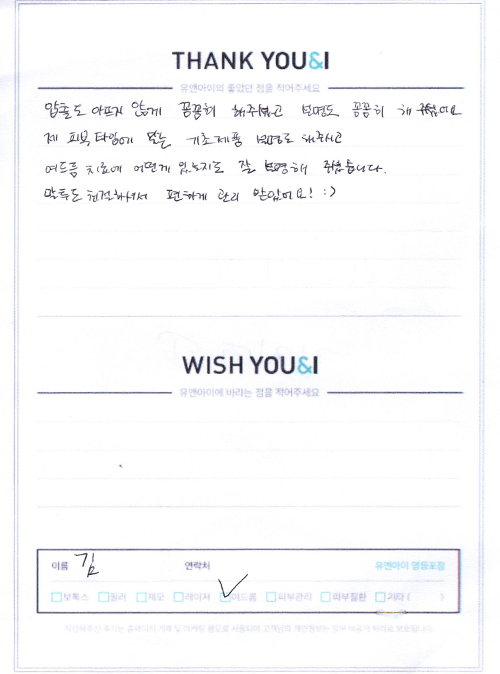 THANK YOU&I
유앤아이의 좋았던 점을 적어주세요
압출도 아프지 않게 꼼꼼히 해주셨고 설명도 꼼꼼히 해 주셨어요
제 피부타입에 맞는 기초제품 설명도 해주시고
여드름 치료에 어떤게 있는지도 잘 설명해 주셨습니다.
말투도 친절하셔서 편하게 관리 받았어요! :)
WISH YOU&I
유앤아이에 바라는 점을 적어주세요
이름 김 연락처 유앤아이 영등포점
보톡스 필러 제모 레이저 여드름 피부관리 피부질환 기타 ( )